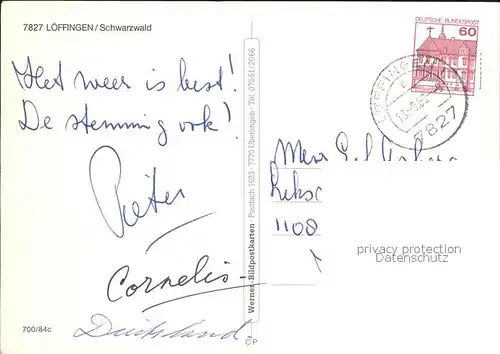 7827 LÖFFINGEN / Schwarzwald
Het weer is best!
De stemming ook!
Pieter
Cornelis
Duitsland
700/84c
Werner-Bildpostkarten Postfach 1623 · 7770 Überlingen · Tel. 07551/2066
DEUTSCHE BUNDESPOST
60
LÖFFINGEN
7827
1108
privacy protection
Datenschutz